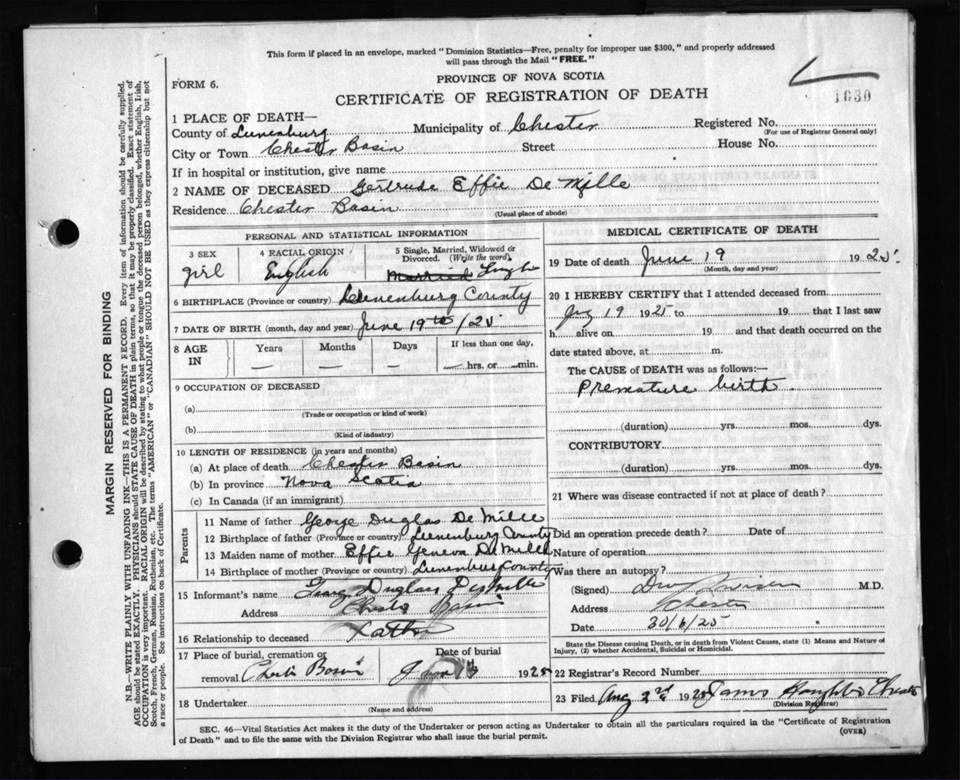 This form if placed in an envelope, marked "Dominion Statistics—Free, penalty for improper use $300," and properly addressed
will pass through the Mail "FREE."
FORM 6.
PROVINCE OF NOVA SCOTIA
1830
CERTIFICATE OF REGISTRATION OF DEATH
1 PLACE OF DEATH—
County of Lunenburg Municipality of Chester Registered No.
(For use of Registrar General only)
City or Town Chester Basin Street House No.
If in hospital or institution, give name
2 NAME OF DECEASED Gertrude Effie De Mille
Residence Chester Basin
(Usual place of abode)
PERSONAL AND STATISTICAL INFORMATION
3 SEX
girl
4 RACIAL ORIGIN
English
5 Single, Married, Widowed or
Divorced. (Write the word)
Married Single
6 BIRTHPLACE (Province or country) Lunenburg County
7 DATE OF BIRTH (month, day and year) June 19th /25
8 AGE IN
Years Months Days If less than one day,
— — — — hrs. or — min.
9 OCCUPATION OF DECEASED
(a)
(Trade or occupation or kind of work)
(b)
(Kind of industry)
10 LENGTH OF RESIDENCE (in years and months)
(a) At place of death Chester Basin
(b) In province Nova Scotia
(c) In Canada (if an immigrant)
Parents
11 Name of father George Duglas De Mille
12 Birthplace of father (Province or country) Lunenburg County
13 Maiden name of mother Effie Geneva De Mille
14 Birthplace of mother (Province or country) Lunenburg County
15 Informant's name Duglas
Address Chester Basin
16 Relationship to deceased Father
17 Place of burial, cremation or
removal Chester Basin
Date of burial
1925
18 Undertaker
(Name and address)
MEDICAL CERTIFICATE OF DEATH
19 Date of death June 19 1925
(Month, day and year)
20 I HEREBY CERTIFY that I attended deceased from
19 1925 to 19 that I last saw
h alive on 19 and that death occurred on the
date stated above, at m.
The CAUSE of DEATH was as follows:—
Premature birth
(duration) yrs. mos. dys.
CONTRIBUTORY
(duration) yrs. mos. dys.
21 Where was disease contracted if not at place of death?
Did an operation precede death? Date of
Nature of operation
Was there an autopsy?
(Signed) M.D.
Address Chester
Date 30/6/25
State the Disease causing Death, or in death from Violent Causes, state (1) Means and Nature of
Injury, (2) whether Accidental, Suicidal or Homicidal.
22 Registrar's Record Number
23 Filed Aug 3rd 1925 Chester
(Division Registrar)
SEC. 46—Vital Statistics Act makes it the duty of the Undertaker or person acting as Undertaker to obtain all the particulars required in the "Certificate of Registration
of Death" and to file the same with the Division Registrar who shall issue the burial permit.
(OVER)
MARGIN RESERVED FOR BINDING
N.B.—WRITE PLAINLY WITH UNFADING INK—THIS IS A PERMANENT RECORD. Every item of information should be carefully supplied.
AGE should be stated EXACTLY. PHYSICIANS should STATE CAUSE OF DEATH in plain terms, so that it may be properly classified. Exact statement of
OCCUPATION is very important. RACIAL ORIGIN will be described by stating to what people or tongue the deceased person belonged, whether English, Irish,
Scotch, French, German, Russian, Ruthenian, etc. The terms "AMERICAN" or "CANADIAN" SHOULD NOT BE USED as they express citizenship but not
a race or people. See instructions on back of Certificate.